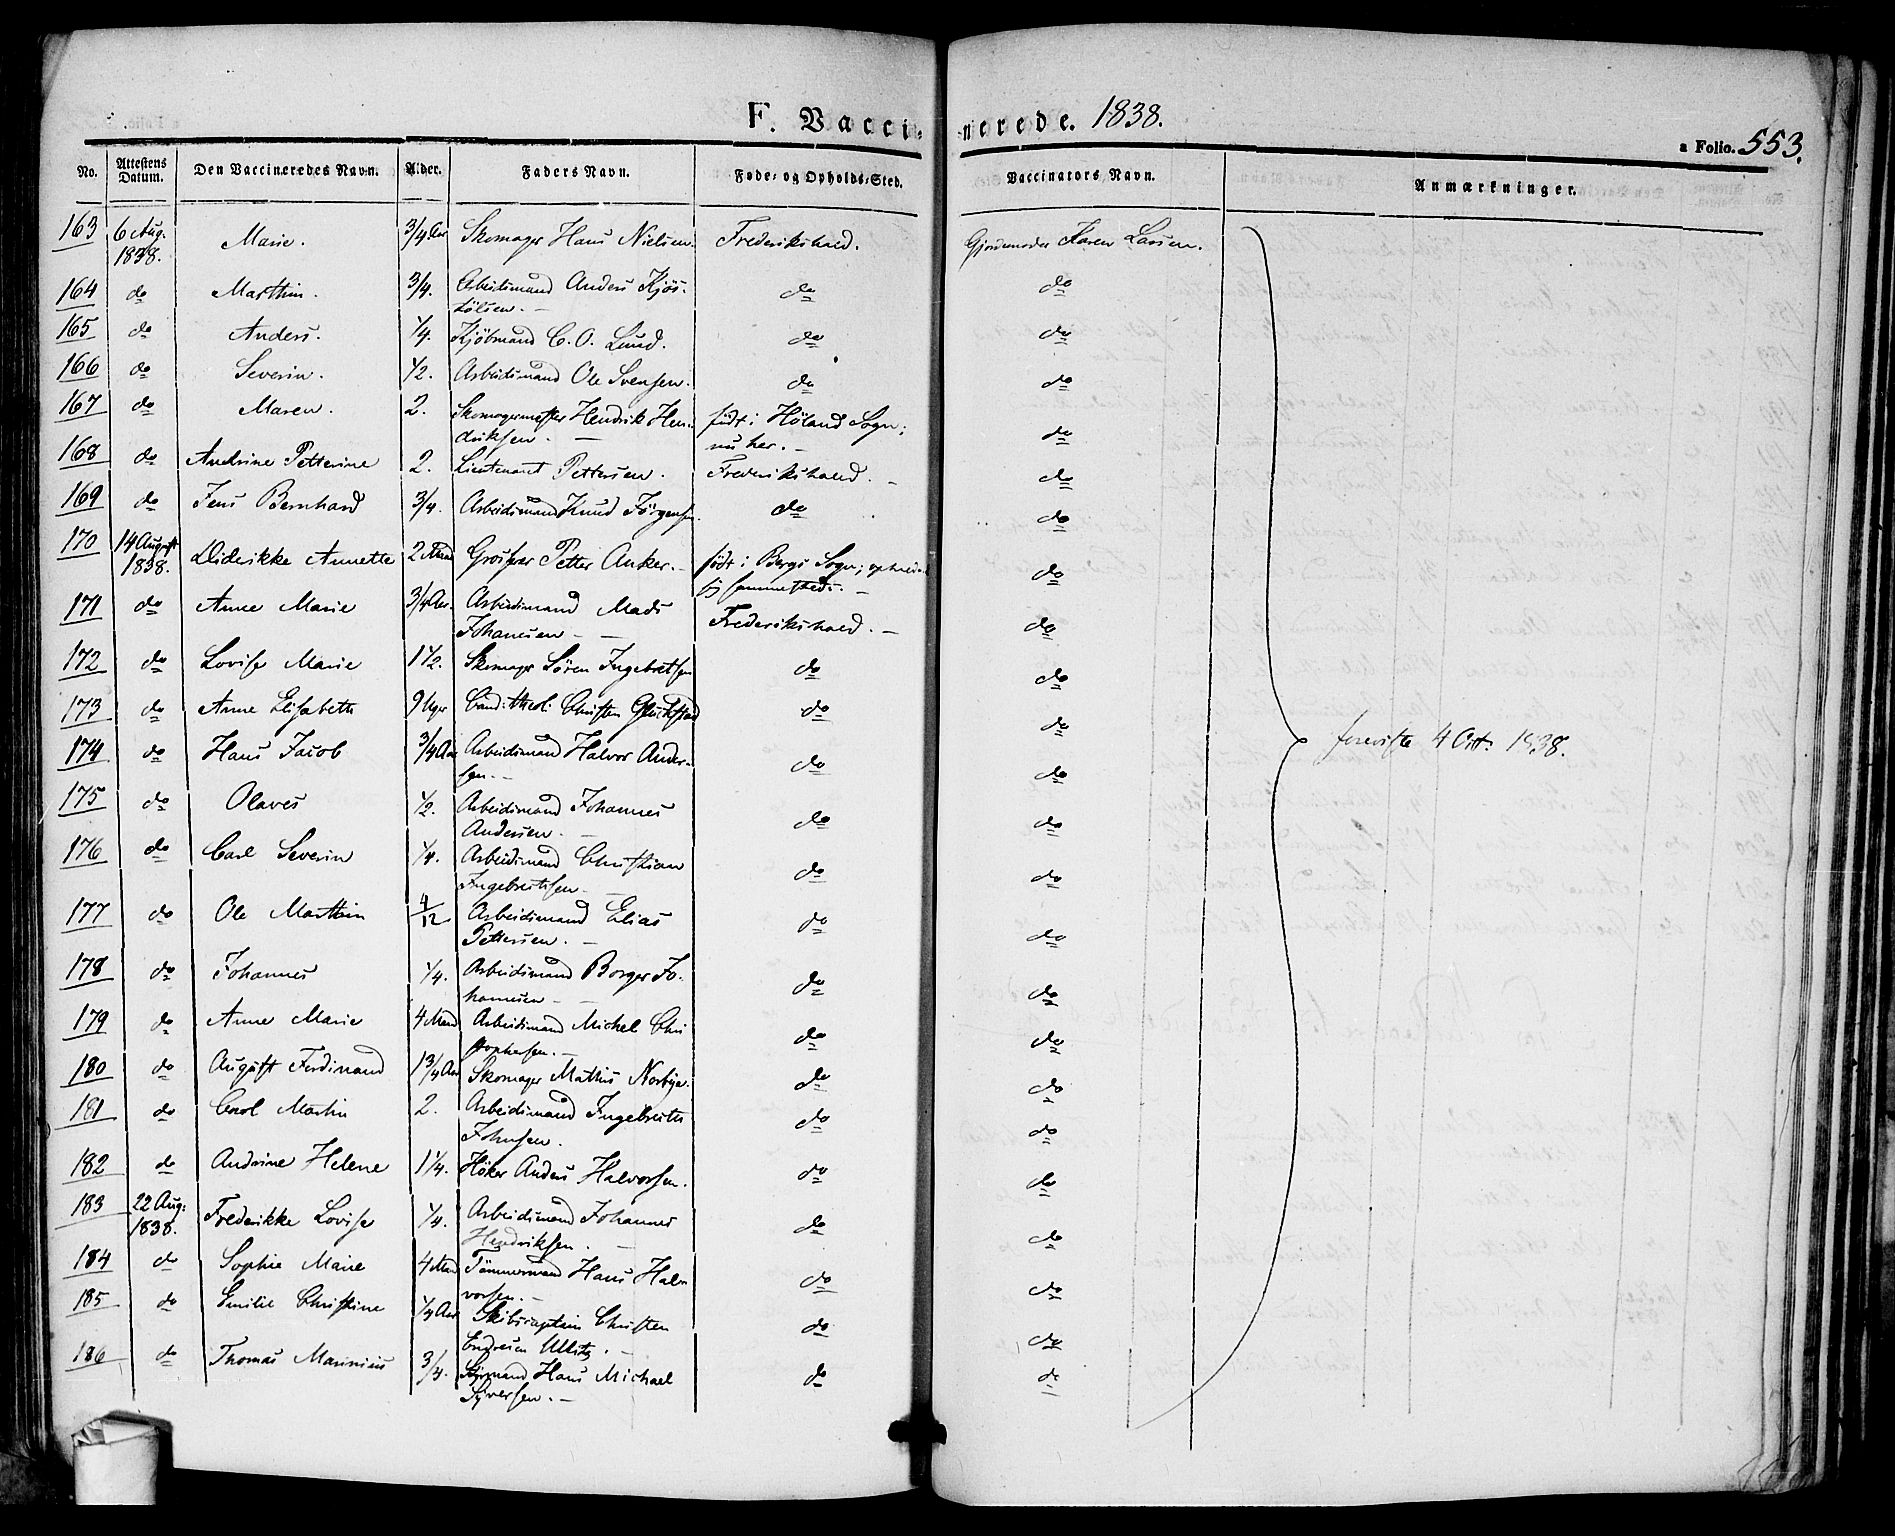 F. Vaccinerede. 1838.
a Folio. 553.
No. Attestens Datum. Den Vaccineredes Navn. Alder. Faders Navn. Føde- og Opholds-Sted. Vaccinators Navn. Anmærkninger.
163 6 Aug. 1838. Marie. 3/4 Aar Skomager Hans Nielsen. Frederikshald. Gjordemoder Karen Larsen.
164 do Marthin. 3/4. Arbeidsmand Anders Kjös-
tölsen. do do
165 do Anders. 1/4. Kjöbmand C. O. Lund. do do
166 do Severin. 1/2. Arbeidsmand Ole Svensen. do do
167 do Maren. 2. Skomagermester Hendrik Hen-
driksen. født i Höland Sogn;
nu her. do
168 do Andrine Petterine 2. Lieutenant Pettersen. Frederikshald. do
169 do Jens Bernhard 3/4. Arbeidsmand Knud Jörgensen. do do
170 14 August 1838. Diderikke Annette 2 Grosserer Petter Anker. født i Bergs Sogn;
sammesteds. do
171 do Anne Marie 3/4 Aar. Arbeidsmand Mads
Johanesen Frederikshald. do
172 do Lovise Marie 1 1/2. Skomager Sören Ingebretsen do do
173 do Anne Elisabeth 9 Uger Cand: theol: Christen Glückstad do do
174 do Hans Jacob 3/4 Aar Arbeidsmand Halvor Ander-
sen. do do
175 do Olaves 1/2. Arbeidsmand Johannes
Andersen. do do
176 do Carl Severin 1/4. Arbeidsmand Christian
Ingebretsen do do
177 do Ole Marthin 4/12 Arbeidsmand Elias
Pettersen. do do
178 do Johannes 1/4. Arbeidsmand Borger Jo-
hannesen do do
179 do Anne Marie 4 Maan Arbeidsmand Michel Chri
stophersen. do do
180 do August Ferdinand 1 3/4 Aar Skomager Mathis Norbye. do do
181 do Carl Martin 2. Arbeidsmand Ingebreth
Johnsen. do do
182 do Andrine Helene 1 1/4. Höker Anders Halvorsen. do do
183 22 Aug: 1838. Frederikke Lovise 1/4. Arbeidsmand Johannes
Hendriksen. do do
184 do Sophie Marie 4 Maan Tömmermand Hans Halv
vorsen. do do
185 do Emilie Christine 1/4 Aar Skibscaptein Christen
Endresen do do
186 do Thomas Marinius 3/4. Styrmand Hans Michael
Syversen. do do
foreviste 4 Oct: 1838.